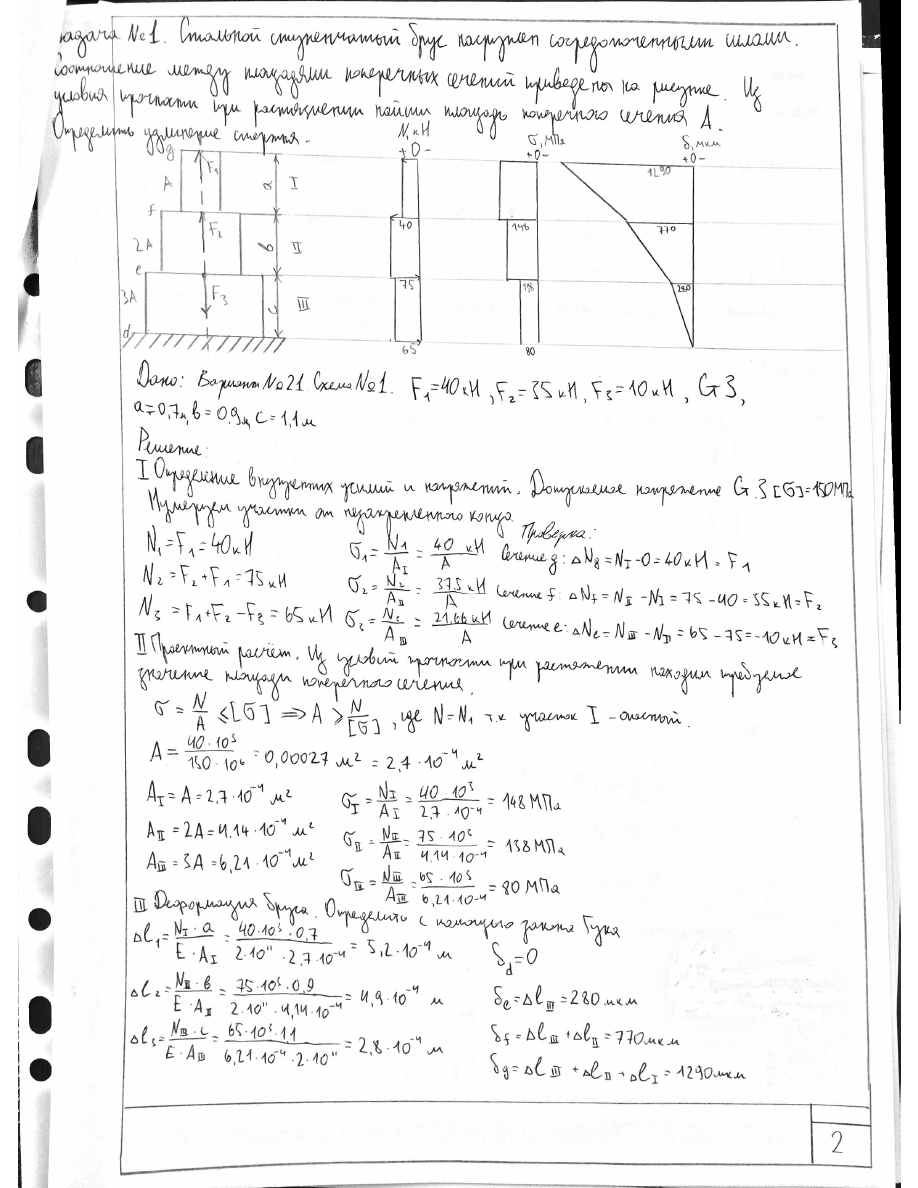 Задача №1. Стальной ступенчатый брус нагружен сосредоточенными силами.
Соотношение между площадями поперечных сечений приведены на рисунке. Из
условия прочности при растяжении найти площадь поперечного сечения A.
Определить удлинение стержня.
N, кН
+0-
σ, МПа
+0-
δ, мкм
+0-
g
A
F1
a
I
1290
f
2A
F2
b
II
40
146
770
e
3A
F3
c
III
75
138
280
d
65
80
Дано: Вариант №21 Схема №1. F1=40кН, F2=35кН, F3=10кН, G3,
a=0,7м, b=0,9м, c=1,1м
Решение:
I Определение внутренних усилий и напряжений. Допускаемое напряжение G.3 [σ]=150МПа
Нумеруем участки от незакрепленного конца
Проверка:
N1=F1=40кН σ1=N1/AI=40 кН/A Сечение g: ΔNg=NI-0=40кН=F1
N2=F2+F1=75кН σ2=N2/AII=37,5кН/A Сечение f: ΔNf=NII-NI=75-40=35кН=F2
N3=F1+F2-F3=65кН σ3=N2/AIII=21,66кН/A Сечение e: ΔNe=NIII-NII=65-75=-10кН=F3
II Проектный расчёт. Из условий прочности при растяжении находим требуемое
значение площади поперечного сечения.
σ=N/A≤[σ]⟹A≥N/[σ], где N=N1 т.к участок I - опасный.
A=40·10³/150·10⁶=0,00027 м²=2,7·10⁻⁴м²
AI=A=2,7·10⁻⁴м² σI=NI/AI=40·10³/2,7·10⁻⁴=148МПа
AII=2A=4,14·10⁻⁴м² σII=NII/AII=75·10³/4,14·10⁻⁴=138МПа
AIII=3A=6,21·10⁻⁴м² σIII=NIII/AIII=65·10³/6,21·10⁻⁴=80МПа
III Деформация бруса. Определить с помощью закона Гука
Δl1=NI·a/E·AI=40·10³·0,7/2·10¹¹·2,7·10⁻⁴=5,2·10⁻⁴ м δd=0
Δl2=NII·b/E·AII=75·10³·0,9/2·10¹¹·4,14·10⁻⁴=4,9·10⁻⁴ м δe=ΔlIII=280мкм
Δl3=NIII·c/E·AIII=65·10³·1,1/6,21·10⁻⁴·2·10¹¹=2,8·10⁻⁴ м δf=ΔlIII+ΔlII=770мкм
δg=ΔlIII+ΔlII+ΔlI=1290мкм
2